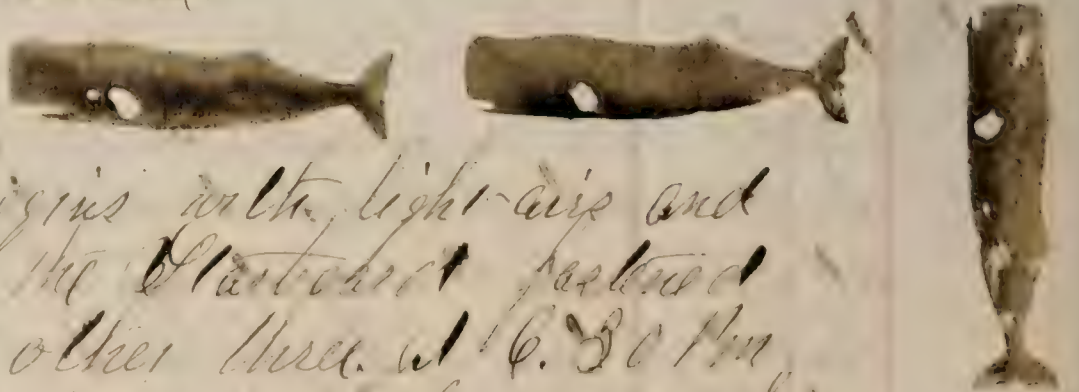 gins with light airs and
the Starboard fastened
other three at 6.30 Pm